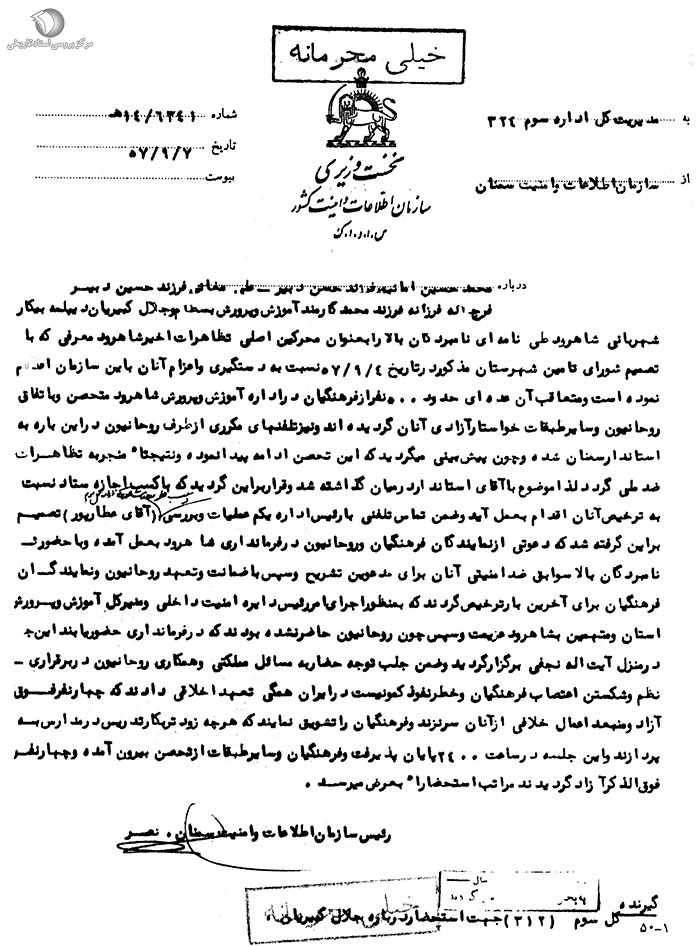 مرکز بررسی اسناد تاریخی
خیلی محرمانه
به مدیریت کل اداره سوم ۳۲۴
شماره ۱۴/۶۳۴۱ هـ
تاریخ ۵۷/۹/۷
پیوست
از سازمان اطلاعات و امنیت سمنان
نخست وزیری
سازمان اطلاعات و امنیت کشور
س.ا.و.ا.ک
درباره محمد حسین امانیه فرزند حسن دبیر ــ علی فرزند حسین دبیر
فرج اله فرزانه فرزند محمد کارمند آموزش وپرورش بسطام وجلال کبیریان دیپلمه بیکار
شهربانی شاهرود طی نامه ای نامبردگان بالا را بعنوان محرکین اصلی تظاهرات اخیر شاهرود معرفی که با
تصمیم شورای تامین شهرستان مذکور در تاریخ ۵۷/۹/۴ نسبت به دستگیری واعزام آنان باین سازمان اعدام
نموده است ومتعاقب آن عده ای حدود ۵۰۰ نفر از فرهنگیان در اداره آموزش وپرورش شاهرود متحصن وباتفاق
روحانیون وسایر طبقات خواستار آزادی آنان گردیده اند ونیز تلفنهای مکرری از طرف روحانیون در این باره به
استاندار سمنان شده وچون پیش بینی میگردید که این تحصن ادامه پیدا نموده ونتیجتا" منجر به تظاهرات
ضد ملی گردد لذا موضوع با آقای استاندار درمیان گذاشته شد وقرار براین گردید که باکسب اجازه ستاد نسبت
به ترخیص آنان اقدام بعمل آید وضمن تماس تلفنی با رئیس اداره یکم عملیات وبررسی (آقای عطارپور) تصمیم
براین گرفته شد که دعوتی از نمایندگان فرهنگیان وروحانیون در فرمانداری شاهرود بعمل آمده وبا حضور
نامبردگان بالا سوابق ضد امنیتی آنان برای مدعوین تشریح وسپس باضمانت وتعهد روحانیون ونمایندگان
فرهنگیان برای آخرین بار ترخیص گردند که بمنظور اجرای امر رئیس دایره امنیت داخلی ومدیرکل آموزش وپرورش
استان ومتهمین بشاهرود عزیمت وسپس چون روحانیون حاضر نشده بودند که در فرمانداری حضور یابند این ج
در منزل آیت اله نجفی برگزار گردید وضمن جلب توجه حضار به مسائل مملکتی وهمکاری روحانیون در برقراری ــ
نظم وشکستن اعتصاب فرهنگیان وخطر نفوذ کمونیست در ایران همگی تعهد اخلاقی دادند که چهار نفر فوق
آزاد ومنبعد اعمال خلافی از آنان سر نزند وفرهنگیان را تشویق نمایند که هرچه زودتر بکار تدریس در مدارس به
پردازند واین جلسه در ساعت ۲۴۰۰ پایان پذیرفت وفرهنگیان وسایر طبقات از تحصن بیرون آمده وچهار نفر
فوق الذکر آزاد گردیدند مراتب استحضارا" بعرض میرسد .
رئیس سازمان اطلاعات و امنیت سمنان . نصر
سال
گیرنده
کل سوم (۳۱۲) جهت استحضار درباره جلال کبیریان .
خیلی محرمانه
۵۰-۱